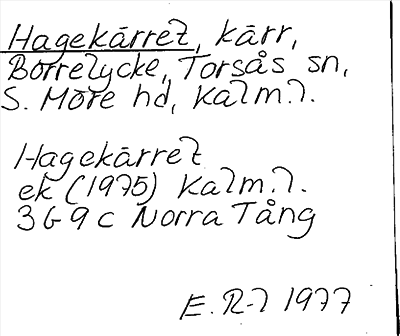 Hagekärret, kärr,
Borrelycke, Torsås sn,
S. Möre hd, Kalm.l.
Hagekärret
ek (1975) Kalm.l.
3G9c Norra Tång
E. R-l 1977